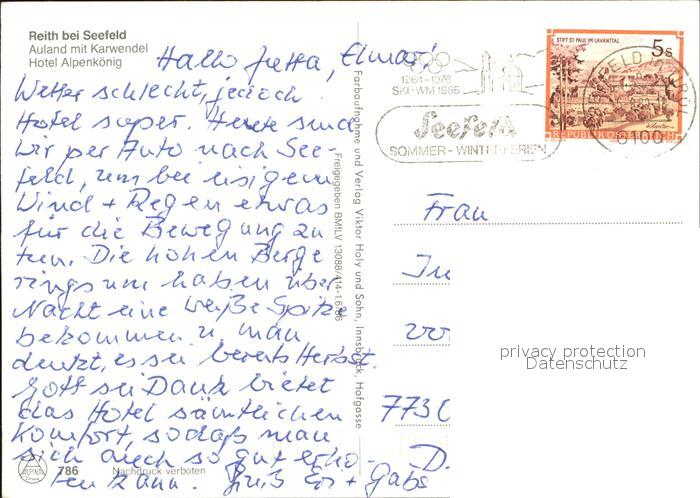 Reith bei Seefeld
Auland mit Karwendel
Hotel Alpenkönig
Hallo Jutta, Elmar!
Wetter schlecht, jedoch
Hotel super. Heute sind
wir per Auto nach See-
feld, um bei eisigem
Wind + Regen etwas
für die Bewegung zu
tun. Die hohen Berge
ringsum haben über
Nacht eine weiße Spitze
bekommen u. man
denkt, es sei bereits Herbst.
Gott sei Dank bietet
das Hotel sämtlichen
Komfort, sodaß man
sich auch so gut erho-
len kann. Gruß
+ Gabs
ALPINA
786
Nachdruck verboten
Farbaufnahme und Verlag Viktor Holy und Sohn, Innsbruck, Hofgasse
Freigegeben BMfLV 13088/414-1,6/86
1964-1976
SKI-WM 1985
Seefeld
SOMMER - WINTERFERIEN
STIFT ST. PAUL IM LAVANTTAL
5s
REPUBLIK ÖSTERREICH
SEEFELD IN TIROL
6100
Frau
773
D.
privacy protection
Datenschutz